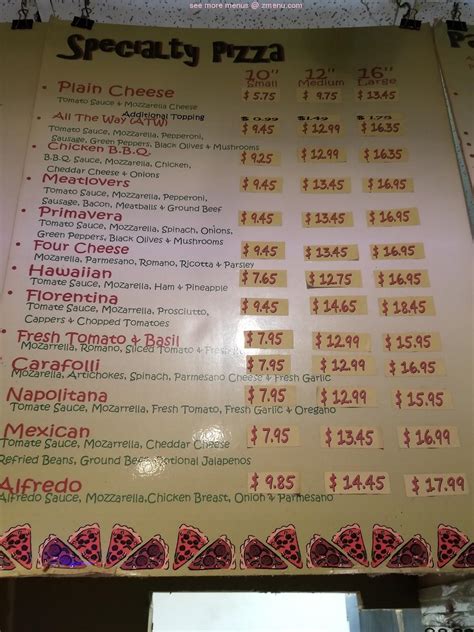 see more menus @ zmenu.com
Specialty Pizza
10" 12" 16"
Small Medium Large
Plain Cheese $ 5.75 $ 9.75 $ 13.45
Tomato Sauce & Mozzarella Cheese
Additional Topping $ 0.99 $ 1.49 $ 1.79
All The Way (ATW) $ 9.45 $ 12.99 $ 16.35
Tomato Sauce, Mozzarella, Pepperoni,
Sausage, Green Peppers, Black Olives & Mushrooms
Chicken B.B.Q. $ 9.25 $ 12.99 $ 16.35
B.B.Q. Sauce, Mozzarella, Chicken,
Cheddar Cheese & Onions
Meatlovers $ 9.45 $ 13.45 $ 16.95
Tomato Sauce, Mozzarella, Pepperoni,
Sausage, Bacon, Meatballs & Ground Beef
Primavera $ 9.45 $ 13.45 $ 16.95
Tomato Sauce, Mozzarella, Spinach, Onions,
Green Peppers, Black Olives & Mushrooms
Four Cheese $ 9.45 $ 13.45 $ 16.95
Mozarella, Parmesano, Romano, Ricotta & Parsley
Hawaiian $ 7.65 $ 12.75 $ 16.95
Tomate Sauce, Mozarella, Ham & Pineapple
Florentina $ 9.45 $ 14.65 $ 18.45
Tomate Sauce, Mozzarella, Prosciutto,
Cappers & Chopped Tomatoes
Fresh Tomato & Basil $ 7.95 $ 12.99 $ 15.95
Mozzarella, Romano, Sliced Tomato &
Carafolli $ 7.95 $ 12.99 $ 16.95
Mozarella, Artichokes, Spinach, Parmesano Cheese & Fresh Garlic
Napolitana $ 7.95 $ 12.99 $ 15.95
Tomate Sauce, Mozzarella, Fresh Tomato, Fresh Garlic & Oregano
Mexican $ 7.95 $ 13.45 $ 16.99
Tomate Sauce, Mozarrella, Cheddar Cheese
Refried Beans, Ground Beef, Optional Jalapenos
Alfredo $ 9.85 $ 14.45 $ 17.99
Alfredo Sauce, Mozzarella, Chicken Breast, Onion & Parmesano